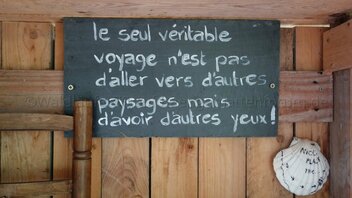 le seul véritable
voyage n'est pas
d'aller vers d'autres
paysages mais
d'avoir d'autres yeux !